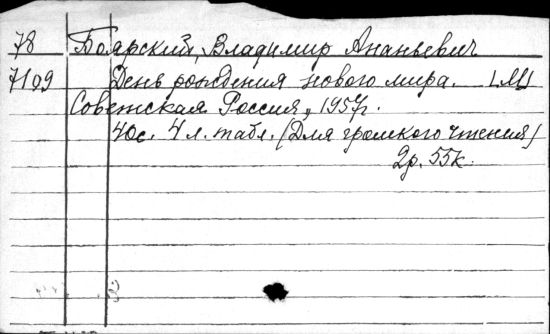 78 Боярский, Владимир Ананьевич
7109 День рождения нового мира. [М]
Советская Россия, 1957г.
40с. 4 л. табл. (Для громкого чтения)
2р. 55к.